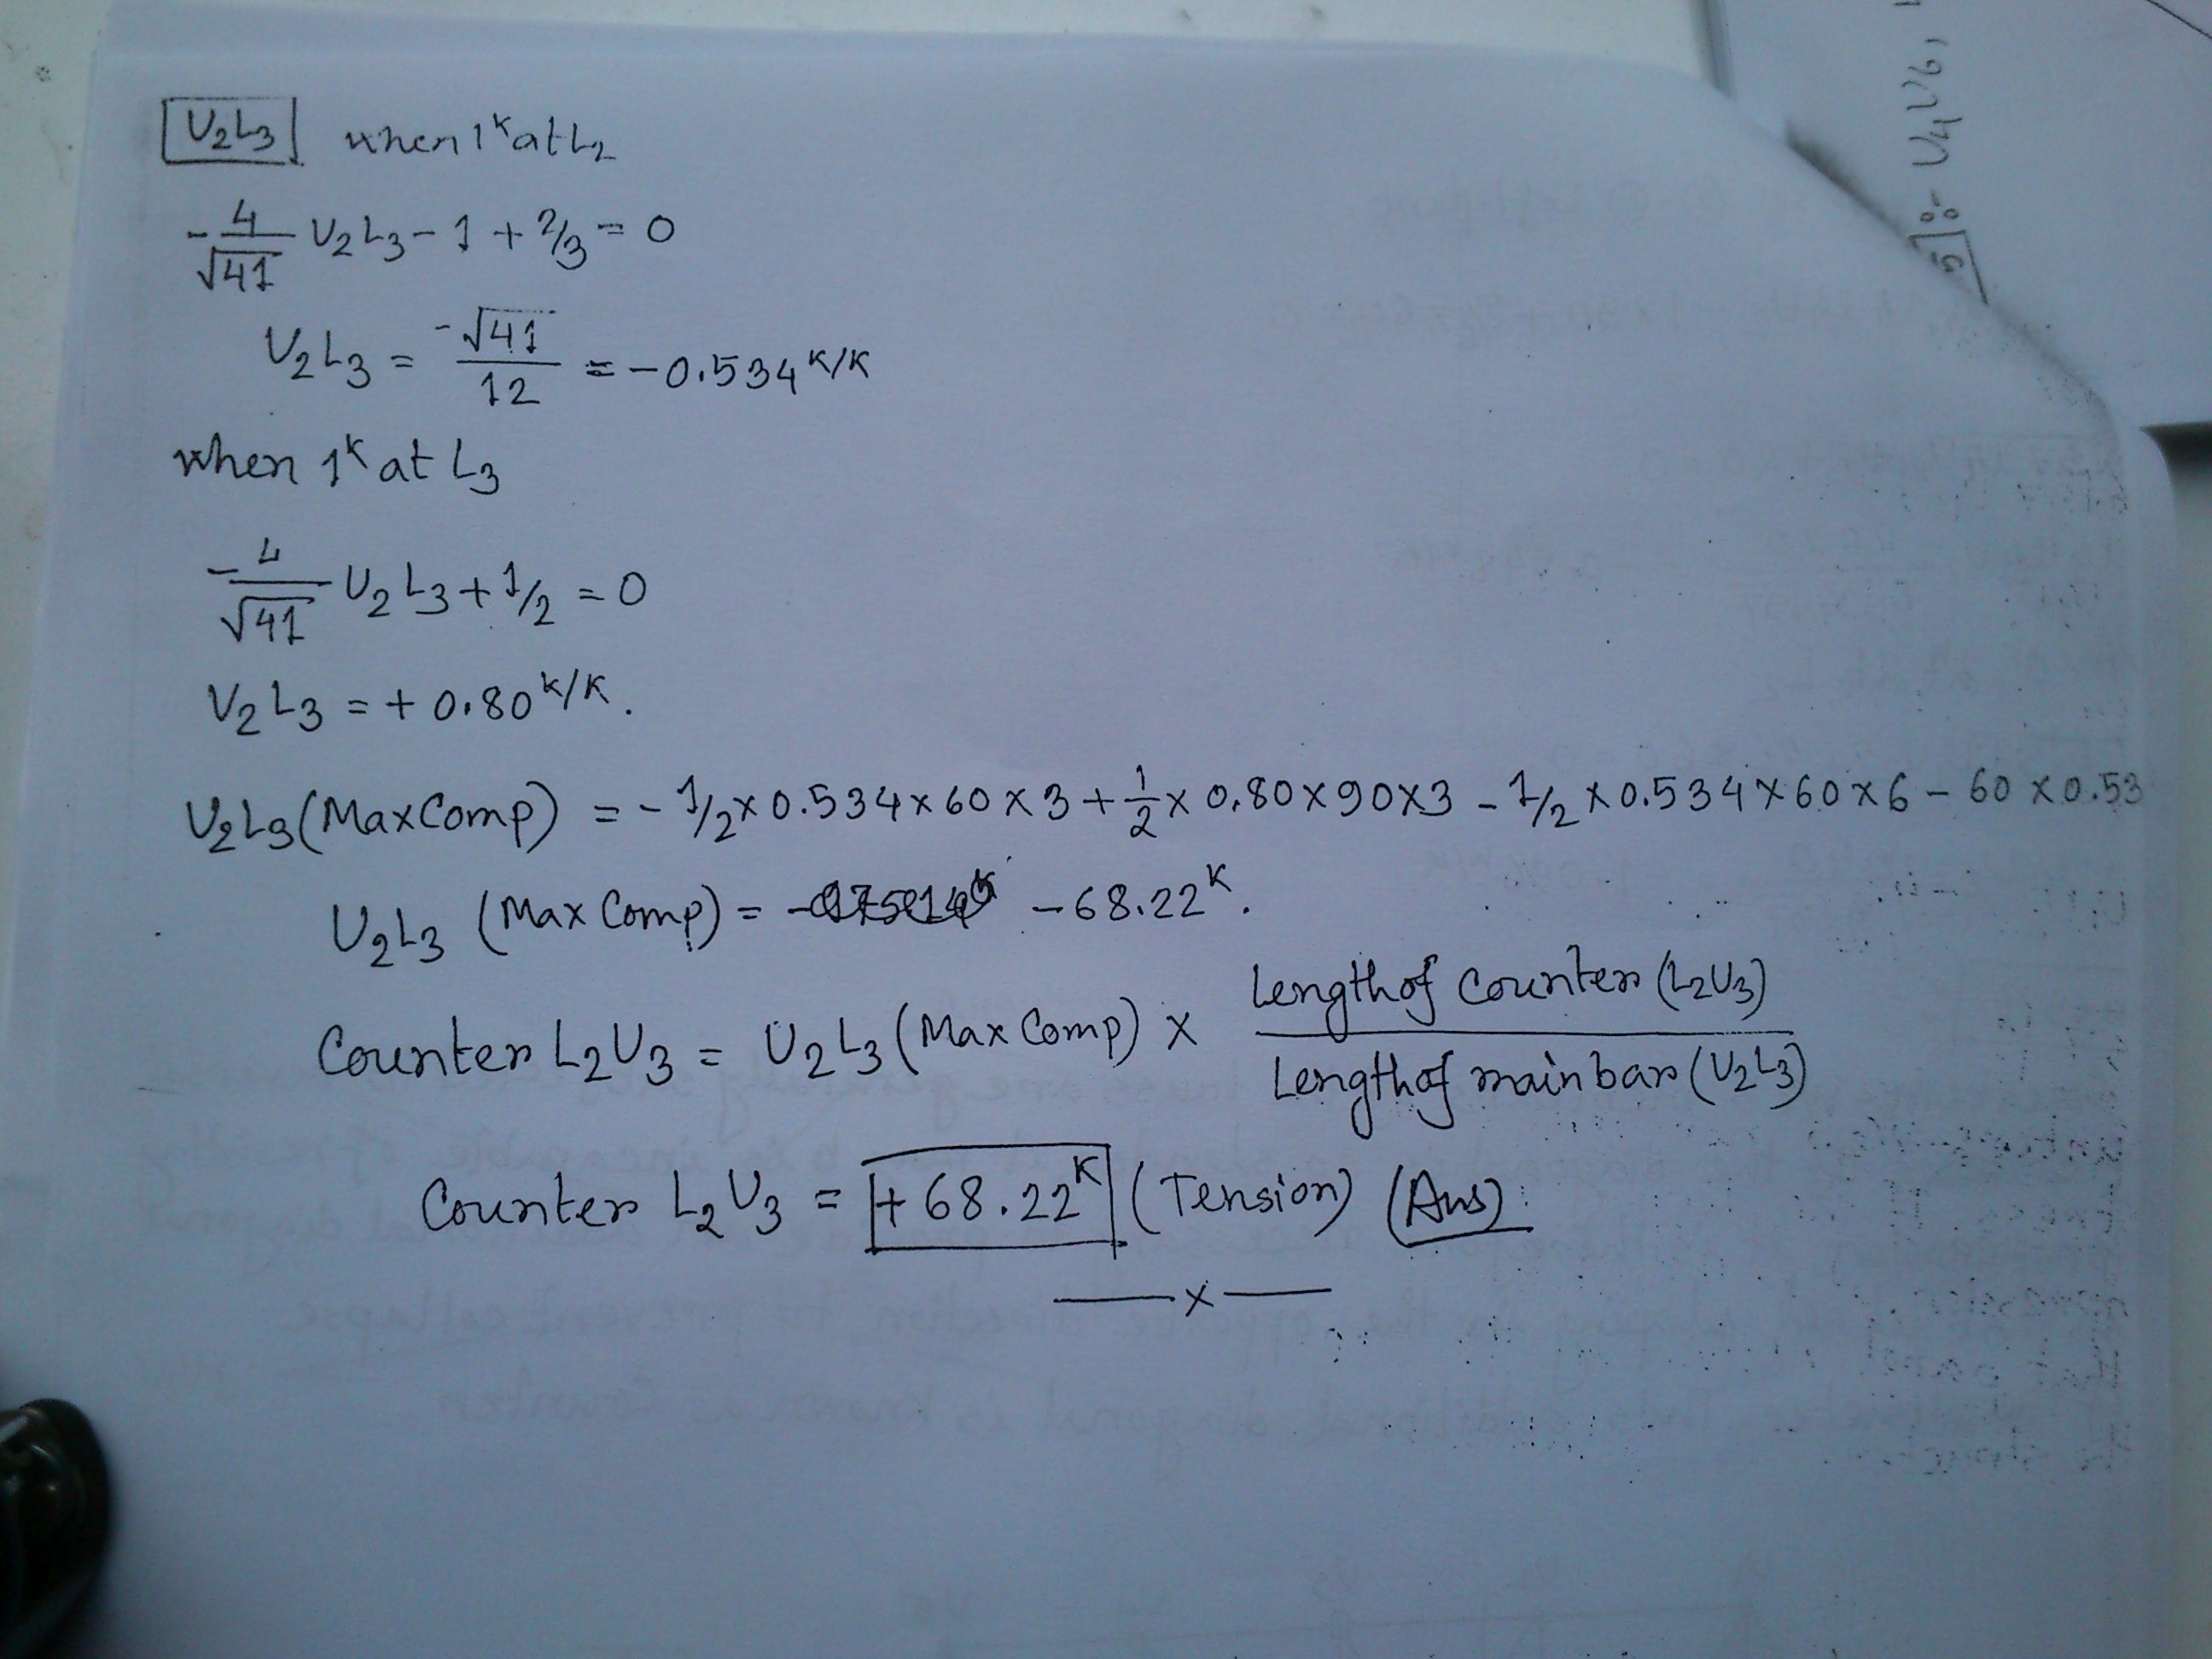 U₂L₃ when 1ᴷ at L₂
-4/√41 U₂L₃ - 1 + 2/3 = 0
U₂L₃ = -√41/12 = -0.534 ᴷ/ᴷ
when 1ᴷ at L₃
-4/√41 U₂L₃ + 1/2 = 0
U₂L₃ = + 0.80 ᴷ/ᴷ.
U₂L₃ (Max Comp) = - 1/2 × 0.534 × 60 × 3 + 1/2 × 0.80 × 90 × 3 - 1/2 × 0.534 × 60 × 6 - 60 × 0.53
U₂L₃ (Max Comp) = - 68.22ᴷ.
Counter L₂U₃ = U₂L₃ (Max Comp) × Length of Counter (L₂U₃) / Length of main bar (U₂L₃)
Counter L₂U₃ = + 68.22ᴷ (Tension) (Ans)
x